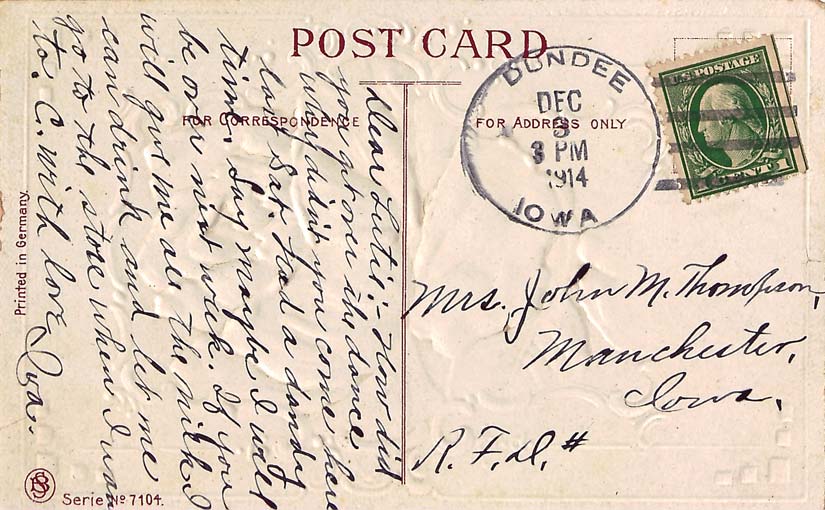 POST CARD
FOR CORRESPONDENCE
FOR ADDRESS ONLY
Dear Lutie:- How did
you get over the dance
Why didn't you come here
last Sat. Had a dandy
time. Say maybe I will
be over next week. If you
will give me all the milk I
can drink and let me
go to the store when I want
to. C. With love Iva.
DUNDEE
DEC
3
3 PM
1914
IOWA
U.S. POSTAGE
1 CENT
Mrs. John M. Thompson,
Manchester,
Iowa.
R.F.D. #
Printed in Germany.
Serie No 7104.